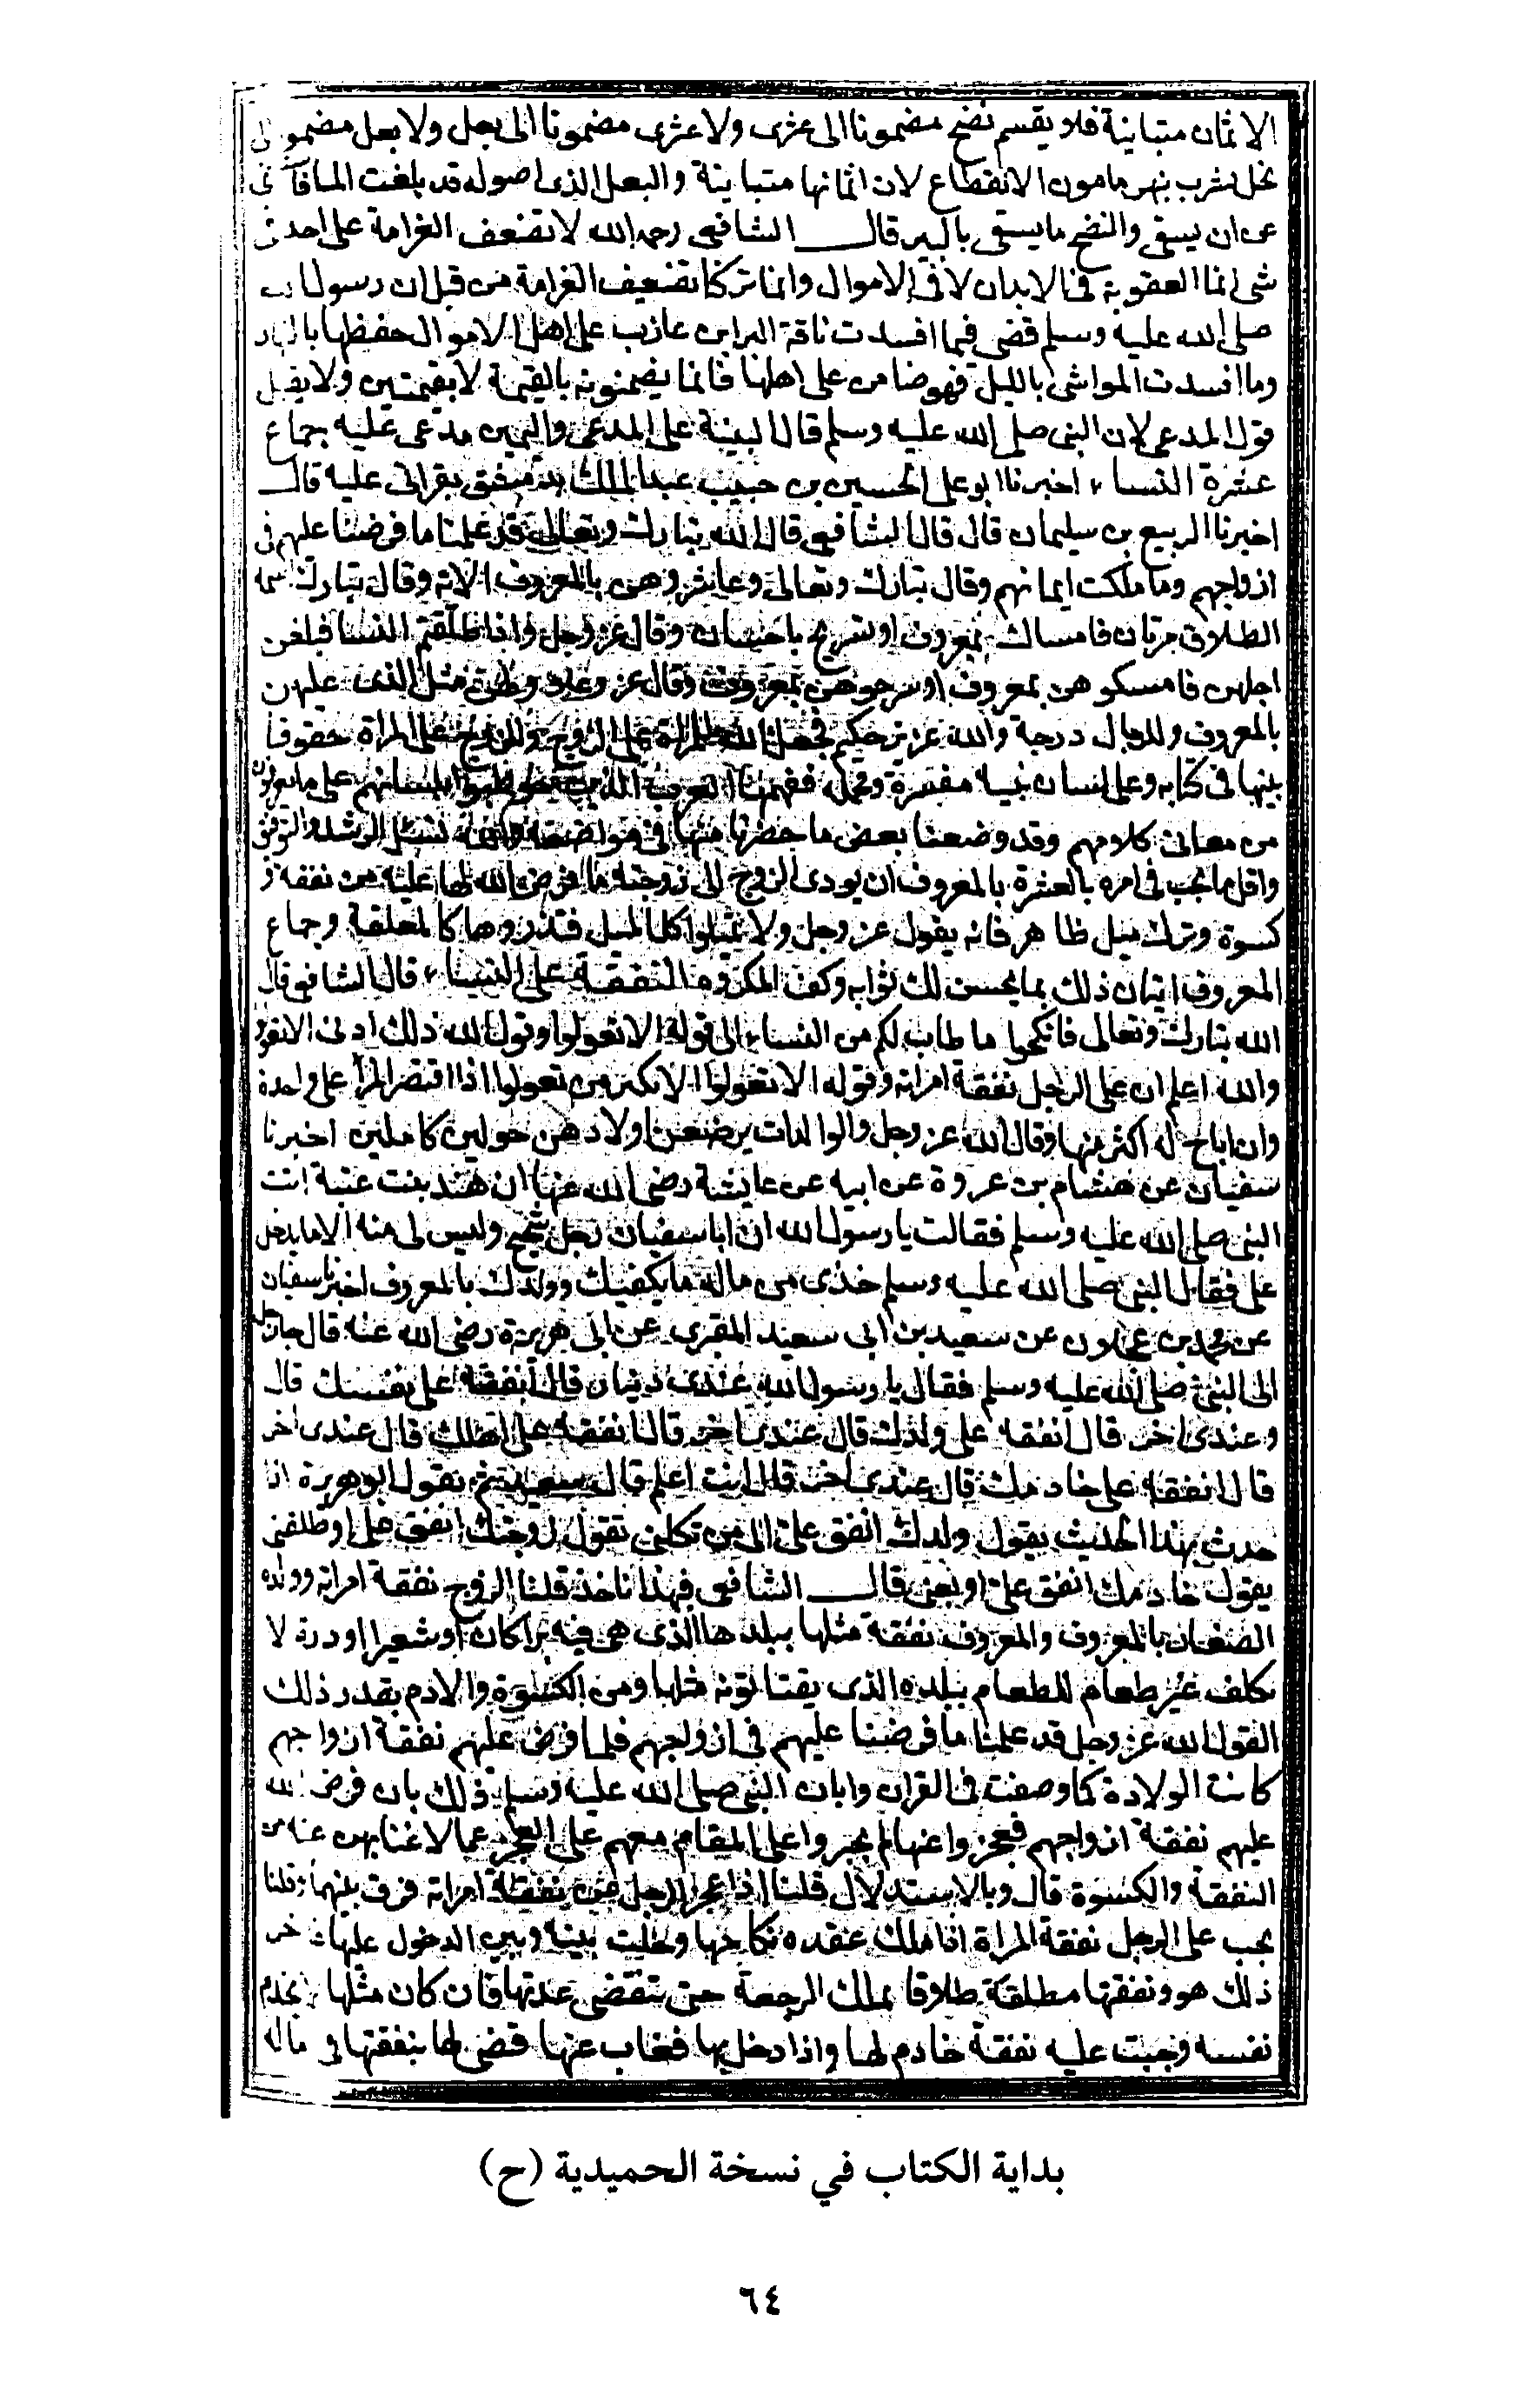 الاثمان متباينة فلا يقسم نضح مضمونا الى عثرى ولا عثرى مضمونا الى بعل ولا بعل مضمونا
نخل يشرب بنهر مامون الانقطاع لان اثمانها متباينة والبعل الذى اصوله قد بلغت الما
عن ان يسقى والنضح ما يسقى بالبير قال الشافعى رحمه الله لا تضعف الغرامة على احد فى
شى انما العقوبة فى الابدان لا فى الاموال وانما تركنا تضعيف الغرامة من قبل ان رسول الله
صلى الله عليه وسلم قضى فيما افسدت ناقة البرا بن عازب على اهل الاموال حفظها بالنهار
وما افسدت المواشى بالليل فهو ضامن على اهلها فانما يضمنونه بالقيمة لا بقيمتين ولا يقبل
قول المدعى لان النبى صلى الله عليه وسلم قال البينة على المدعى واليمين مدعى عليه جماع
عشرة النسا اخبرنا ابو على الحسين بن حبيب عبد الملك بدمشق بقراتى عليه قال
اخبرنا الربيع بن سليمان قال قال الشافعى قال الله تبارك وتعالى قد علمنا ما فرضنا عليهم فى
ازواجهم وما ملكت ايمانهم وقال تبارك وتعالى وعاشروهن بالمعروف الاية وقال تبارك اسمه
الطلاق مرتان فامساك بمعروف او تسريح باحسان وقال عز وجل واذا طلقتم النسا فبلغن
اجلهن فامسكوهن بمعروف او سرحوهن بمعروف وقال عز وعلا ولهن مثل الذى عليهن
بالمعروف وللرجال درجة والله عزيز حكيم فجعل الله للمراة على الزوج وللزوج على المراة حقوقا
بينها فى كتابه وعلى لسان نبيه مفسرة ومجملة ففهمها العرب الذين خوطبوا بلسانهم على ما يعرفون
من معانى كلامهم وقد وضعنا بعض ما حضرنا منها فى مواضعه والله نسئل الرشد والتوفيق
واقل ما يجب فى امره بالعشرة بالمعروف ان يودى الزوج الى زوجته ما فرض الله لها عليه من نفقة و
كسوة وترك ميل ظاهر فانه يقول عز وجل ولا تميلوا كل الميل فتذروها كالمعلقة وجماع
المعروف اتيان ذلك بما يحسن لك ثوابه وكف المكروه النفقة على النسا قال الشافعى قال
الله تبارك وتعالى فانكحوا ما طاب لكم من النسا الى قوله الا تعولوا وقول الله ذلك ادنى الا تعولوا
والله اعلم ان على الرجل نفقة امراته وقوله الا تعولوا الا يكثر من تعولوا اذا اقتصر المرا على واحدة
وان اباح له اكثر منها وقال الله عز وجل والوالدات يرضعن اولادهن حولين كاملين اخبرنا
سفيان عن هشام بن عروة عن ابيه عن عايشة رضى الله عنها ان هند بنت عتبة اتت
النبى صلى الله عليه وسلم فقالت يا رسول الله ان ابا سفيان رجل شحيح وليس لى منه الا ما يدخل
على فقال النبى صلى الله عليه وسلم خذى من ماله ما يكفيك وولدك بالمعروف اخبرنا سفيان
عن محمد بن عجلان عن سعيد بن ابى سعيد المقبرى عن ابى هريرة رضى الله عنه قال جا رجل
الى النبى صلى الله عليه وسلم فقال يا رسول الله عندى دينار قال انفقه على نفسك قال
وعندى اخر قال انفقه على ولدك قال عندى اخر قال انفقه على اهلك قال عندى اخر
قال انفقه على خادمك قال عندى اخر قال انت اعلم قال سعيد ثم يقول ابو هريرة اذا
حدث بهذا الحديث يقول ولدك انفق على الى من تكلنى تقول زوجتك انفق على او طلقنى
يقول خادمك انفق على او بعنى قال الشافعى فبهذا ناخذ قلنا الزوج نفقة امراته وولده
الصغار بالمعروف والمعروف نفقة مثلها ببلدها الذى هى فيه برا كان او شعيرا او ذرة لا
يكلف غير طعام للطعام ببلده الذى يقتاتونه مثلها ومن الكسوة والادم بقدر ذلك
القول الله عز وجل قد علمنا ما فرضنا عليهم فى ازواجهم فلما فرض عليهم نفقة ازواجهم
كانت الولادة كما وصفت فى القران وابان النبى صلى الله عليه وسلم ذلك بان فرض الله
عليهم نفقة ازواجهم فعجزوا عنها لم يجبروا على المقام معهم على العجز عما لا غنا بهن عنه من
النفقة والكسوة قال وبالاستدلال قلنا اذا عجز الرجل عن نفقة امراته فرق بينهما وقلنا
يجب على الرجل نفقة المراة اذا ملك عقده نكاحها وخلت بينه وبين الدخول عليها
ذلك هو ونفقتها مطلقة طلاقا يملك الرجعة حتى تنقضى عدتها فان كان مثلها لا يخدم
نفسه وجبت عليه نفقة خادم لها واذا دخل بها فغاب عنها قضى لها بنفقتها فى ماله
بداية الكتاب في نسخة الحميدية (ح)
٦٤